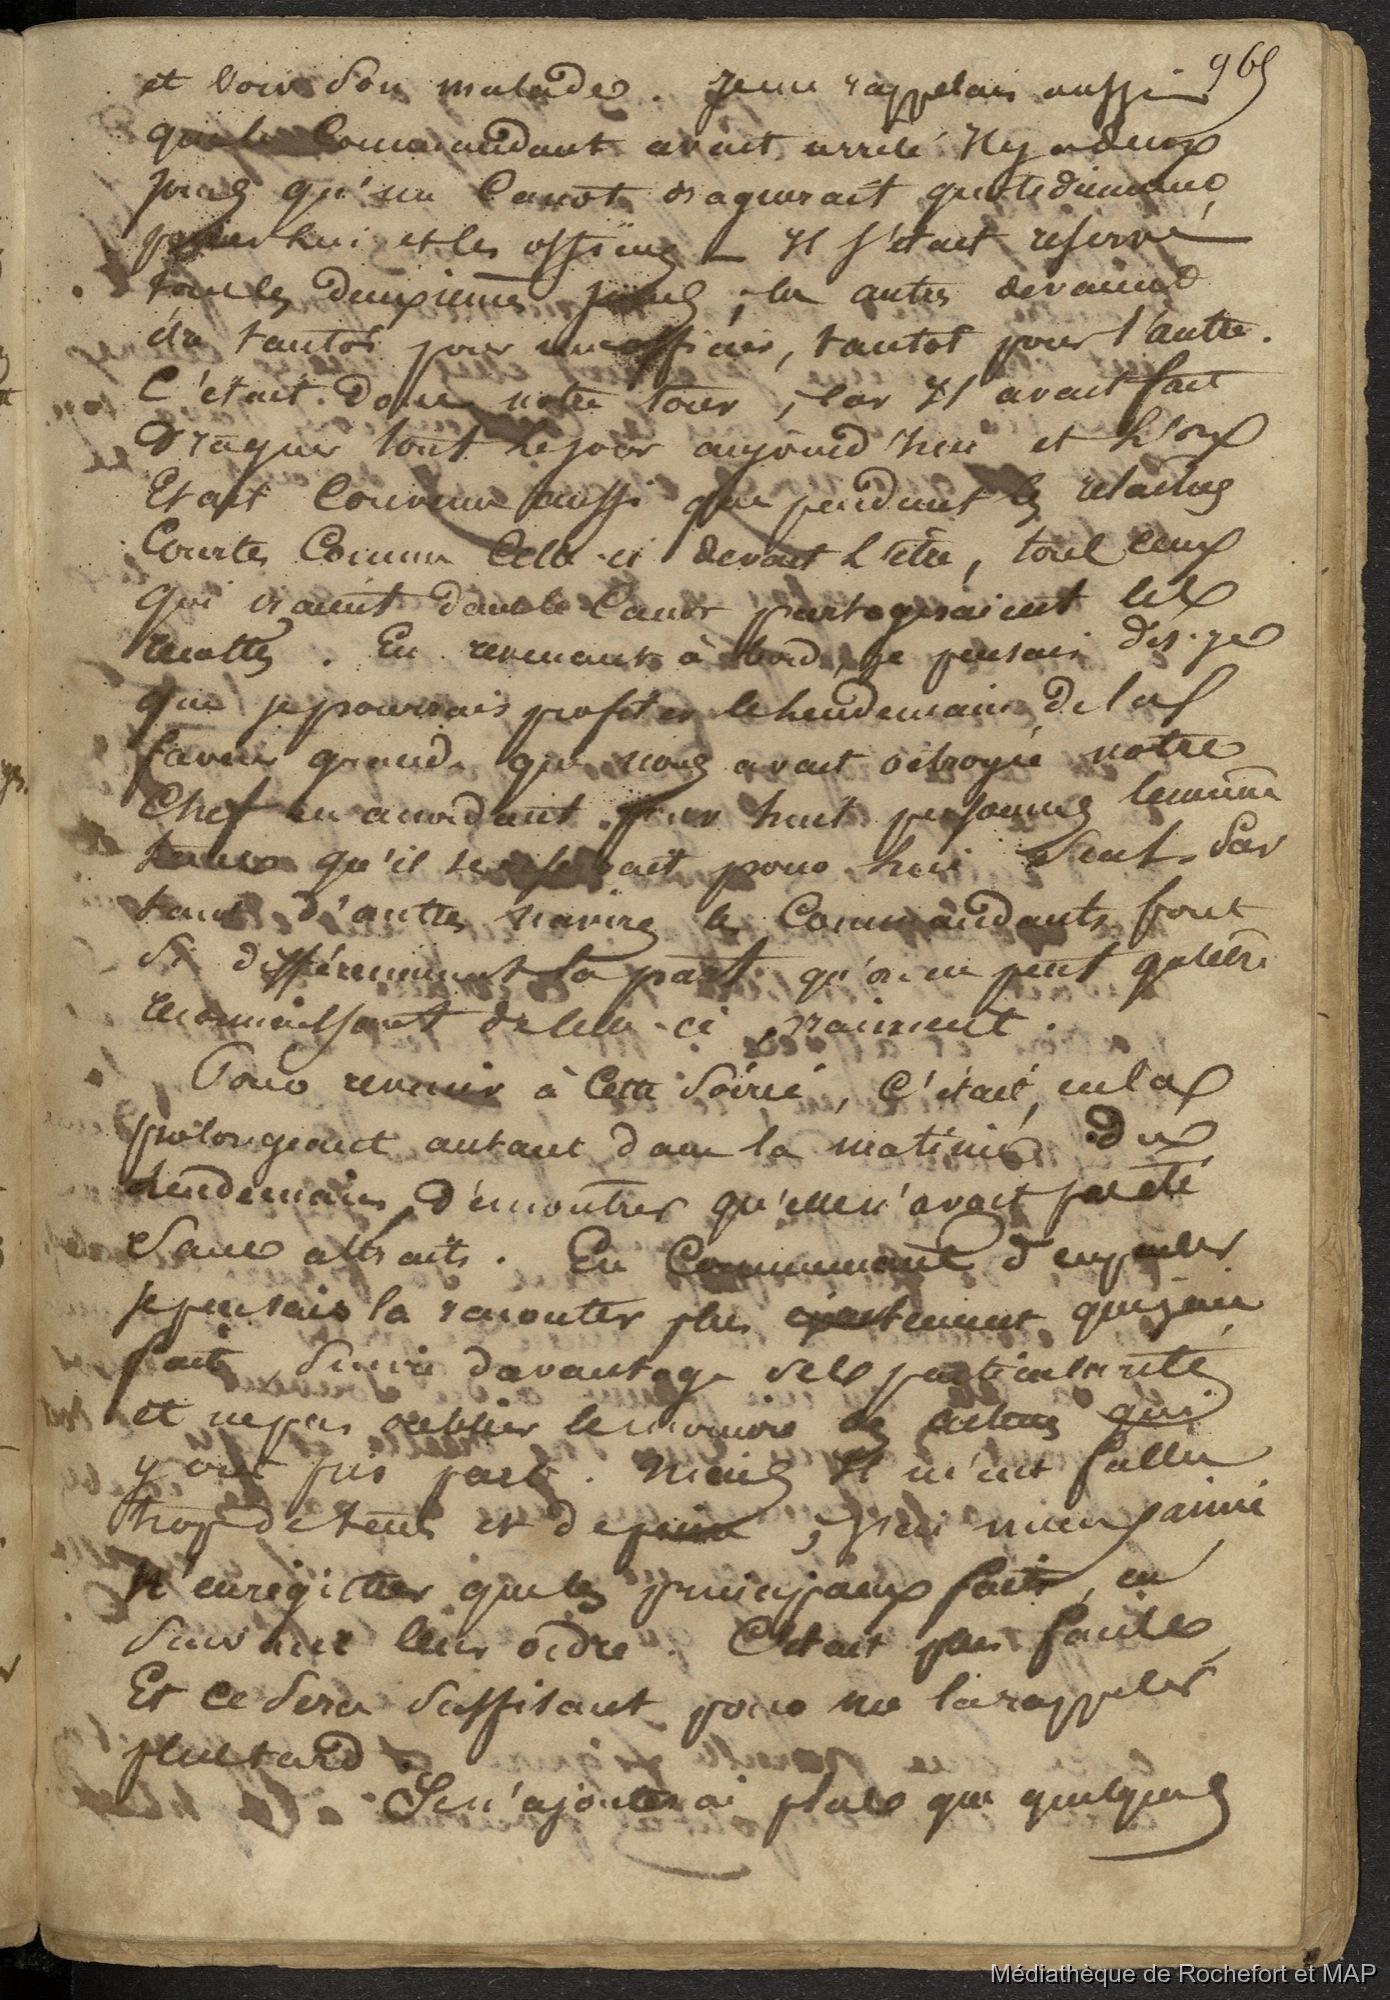 965
et voir son malade. Je me rappelais aussi
que le Commandant avait arrêté Il y a deux
jours qu'un Canot draguerait quotidiennement
pour lui et les officiers — Il s'était réservé
tous les deuxièmes jours ; les autres devaient
être tantôt pour un officier, tantot pour l'autre.
C'était donc notre tour ; car Il avait fait
draguer tout le jour aujourd'hui et l'on
Etait Convenu aussi que pendant les relaches
Courtes Comme Celle-ci devait l'être, tous ceux
qui iraient dans le Canot partageraient les
recoltes. En revenant à bord, je pensais dis-je
que je pourrais profiter le lendemain de la
faveur grande que nous avait octroyée notre
Chef en accordant pour huit personnes le même
temps qu'il se reservait pour lui seul. Sur
tant d'autres navires les Commandants font
si différemment la part qu'on ne peut qu'être
reconnaissant de celle-ci, vraiment.
Pour revenir à Cette Soirée, C'était, en la
prolongeant autant dans la matinée du
lendemain, démontrer qu'elle n'avait pas été
Sans attraits. En Commençant d'en parler
je pensais la raconter plus que je n'ai
fait, suivre davantage ses particularités
et ne pas oublier les acteurs qui
y ont pris part. Mais Il m'eut fallu
trop de tems et de peine ; j'ai mieux aimé
N'enregistrer que les principaux faits, en
suivant leur ordre. C'était plus facile
Et ce sera suffisant pour me la rappeler
plus tard.
Je n'ajouterai plus que quelques
Médiathèque de Rochefort et MAP